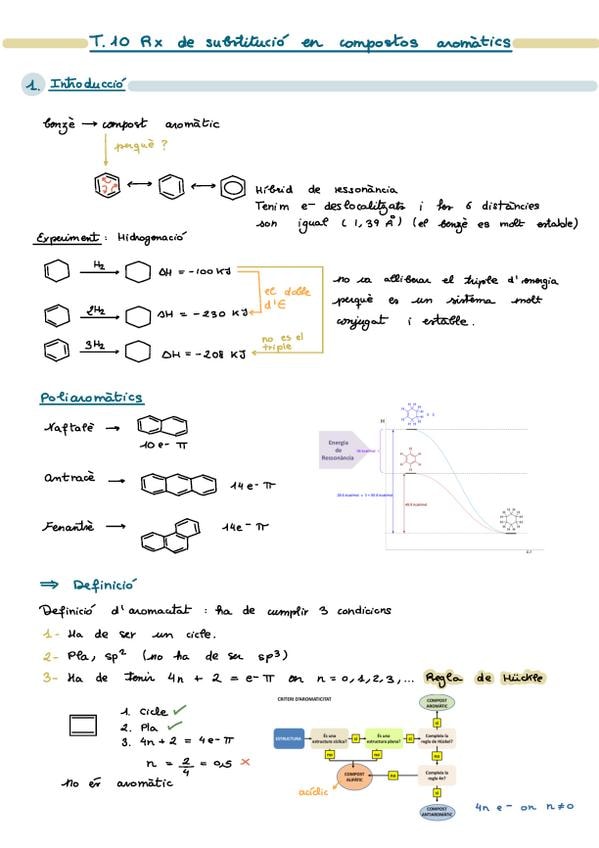 T.10 Rx de substitució en compostos aromàtics
1. Introducció
benzè → compost aromàtic
perquè ?
Híbrid de ressonància
Tenim e⁻ deslocalitzats i les 6 distàncies
son igual (1,39 Å) (el benzè es molt estable)
Experiment : Hidrogenació
H₂ ΔH = -100 KJ
2H₂ ΔH = -230 KJ
3H₂ ΔH = -208 KJ
el doble
d'E
no es el
triple
no va alliberar el triple d'energia
perquè es un sistema molt
conjugat i estable.
Poliaromàtics
Naftalè →
10 e⁻ π
Antracè → 14 e⁻ π
Fenantrè → 14 e⁻ π
Energia
de
Ressonància
H
⇒ Definició
Definició d'aromacitat : ha de cumplir 3 condicions
1- Ha de ser un cicle.
2- Pla, sp² (no ha de ser sp³)
3- Ha de tenir 4n + 2 = e⁻ π on n = 0, 1, 2, 3, ... Regla de Hückle
1. Cicle ✓
2. Pla ✓
3. 4n + 2 = 4 e⁻ π
n = 2/4 = 0,5 ×
no és aromàtic
CRITERI D'AROMATICITAT
COMPOST
AROMÀTIC
sí
ESTRUCTURA
És una
estructura cíclica?
sí
És una
estructura plana?
sí
Compleix la
regla de Hückel?
no
no
no
COMPOST
ALIFÀTIC
no
Compleix la
regla 4n?
acíclic
sí
COMPOST
ANTIAROMÀTIC
4n e⁻ on n ≠ 0